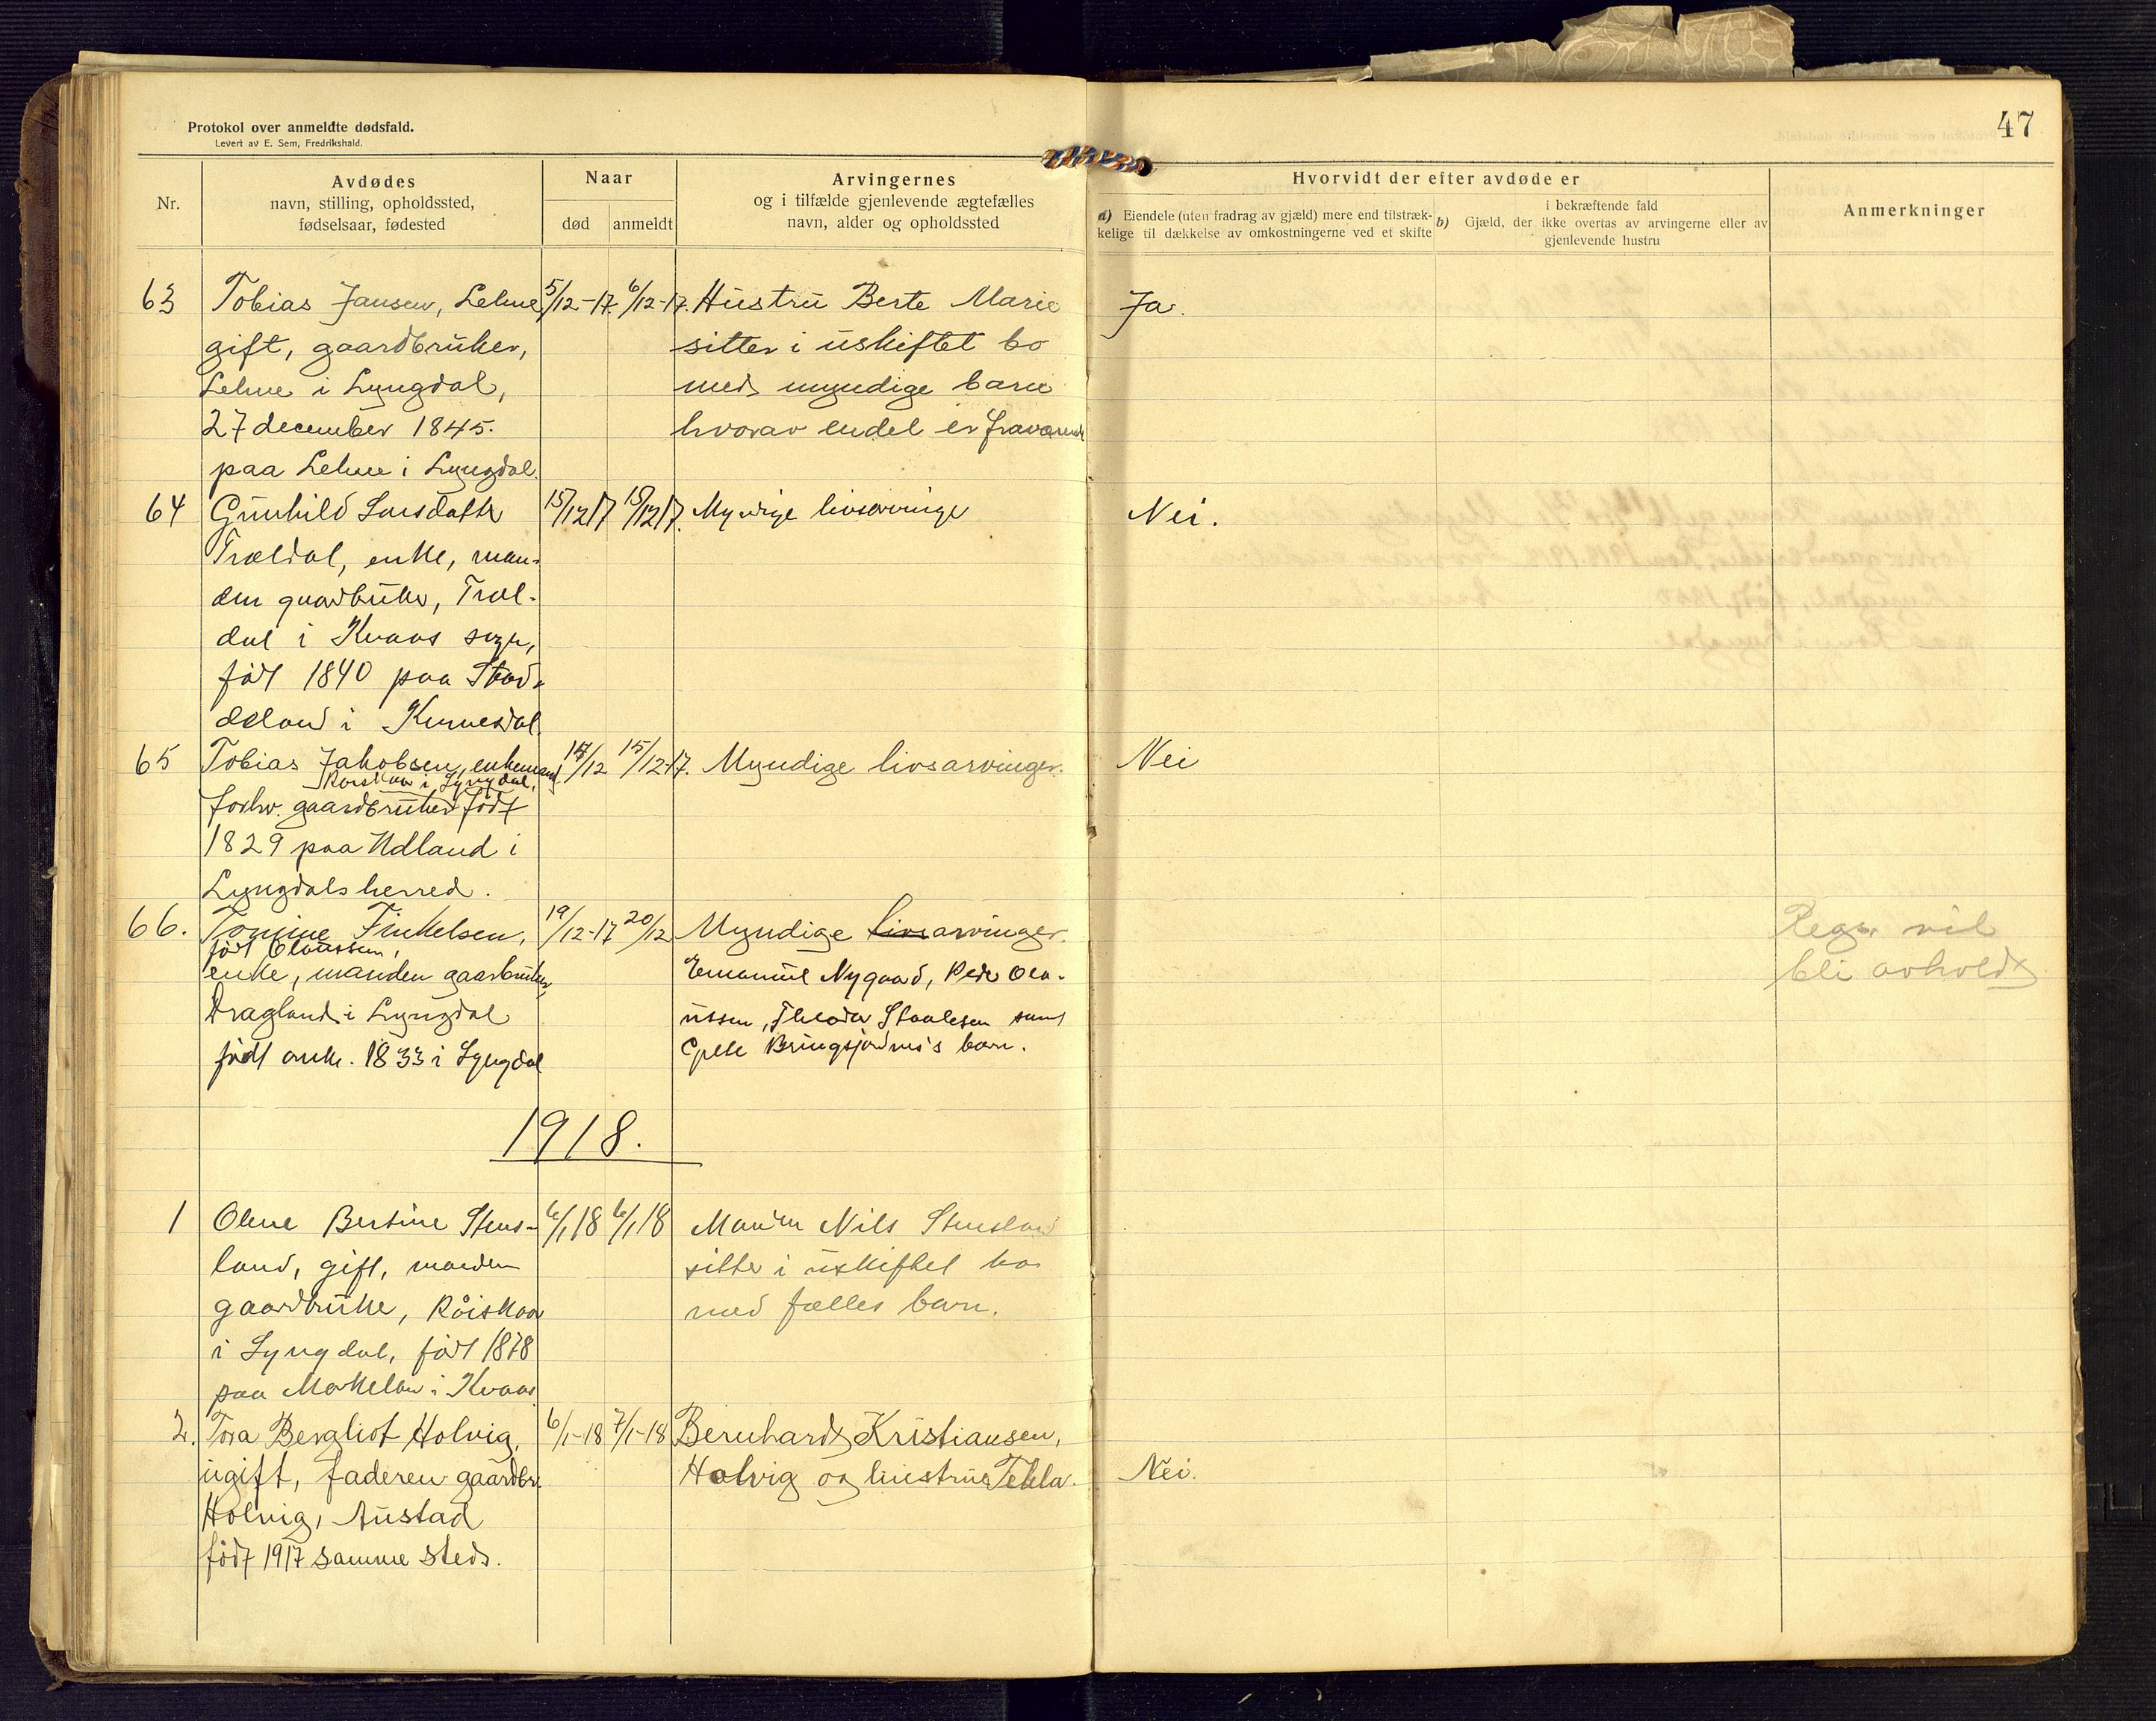 Protokol over anmeldte dødsfald.
Levert av E. Sem, Fredrikshald.
47
Nr.
Avdødes
navn, stilling, opholdssted,
fødselsaar, fødested
Naar
død
anmeldt
Arvingernes
og i tilfælde gjenlevende ægtefælles
navn, alder og opholdssted
Hvorvidt der efter avdøde er
a) Eiendele (uten fradrag av gjæld) mere end tilstræk-
kelige til dækkelse av omkostningerne ved et skifte
b) Gjæld, der i bekræftende fald
ikke overtas av arvingerne eller av
gjenlevende hustru
Anmerkninger
63 Tobias Jansen, Lehne 5/12-17. 6/12-17. Hustru Berte Marie Ja.
gift, gaardbruker, sitter i uskiftet bo
Lehne i Lyngdal, med myndige barn
27 december 1845. hvorav endel er fraværende
paa Lehne i Lyngdal.
64 Gunhild Larsdatter 15/12 17 15/12 17. Myndige livsarvinge Nei.
Trældal, enke, man-
den gaardbruker, Træl-
dal i Kvaas sogn,
født 1840 paa
i
65 Tobias Jakobsen, enkemand 14/12 15/12-17. Myndige livsarvinger. Nei
Røiskaar i Lyngdal,
forhv. gaardbruker født
1829 paa Udland i
Lyngdals herred.
66. Tomine Tinkelsen, 19/12-17 20/12 Myndige livsarvinger.
født Olaussen,
enke, manden gaardbruker, Emanuel Nygaard, Peder Ola-
Dragland i Lyngdal ussen, Theodor Staalesen samt
født omkr. 1833 i Lyngdal Bringsjordnes's barn.
Regr. vil
bli avholdt
1918.
1 Olene Bertine Stens- 6/1 18 6/1 18 Manden Nils Stensland
land, gift, manden sitter i uskiftet bo
gaardbruke, Røiskaar med fælles barn.
i Lyngdal, født 1878
paa i Kvaas
2. Tora Bergliot Holvig, 6/1-18 7/1-18 Bernhard Kristiansen,
ugift, faderen gaardbr. Holvig og hustru Tekla. Nei.
Holvig, Austad
født 1917 samme steds.